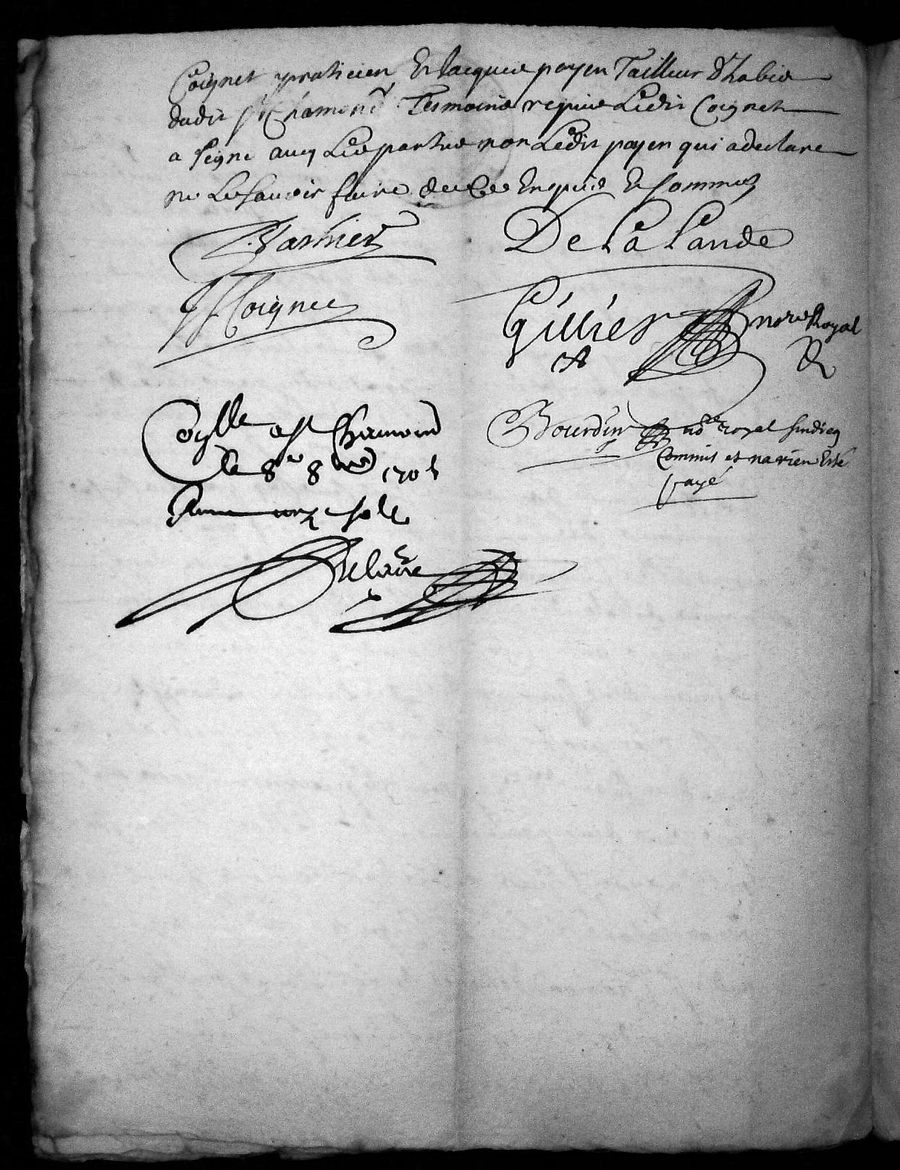 Coignet praticien Et Jacques payen Tailleur d'habis
dudit St Chamond Tesmoins requis Ledit Coignet
a signe avec Les parties non Ledit payen qui a declare
ne Le savoir faire de Ce Enquis Et sommé
De La Lande
J Coignet
Gillier nore Royal
Bourdin nore royal sindicq
Commis et na rien Esté
payé
Collé a St Chamond
le 8e 8bre 1705
sols
Delavie